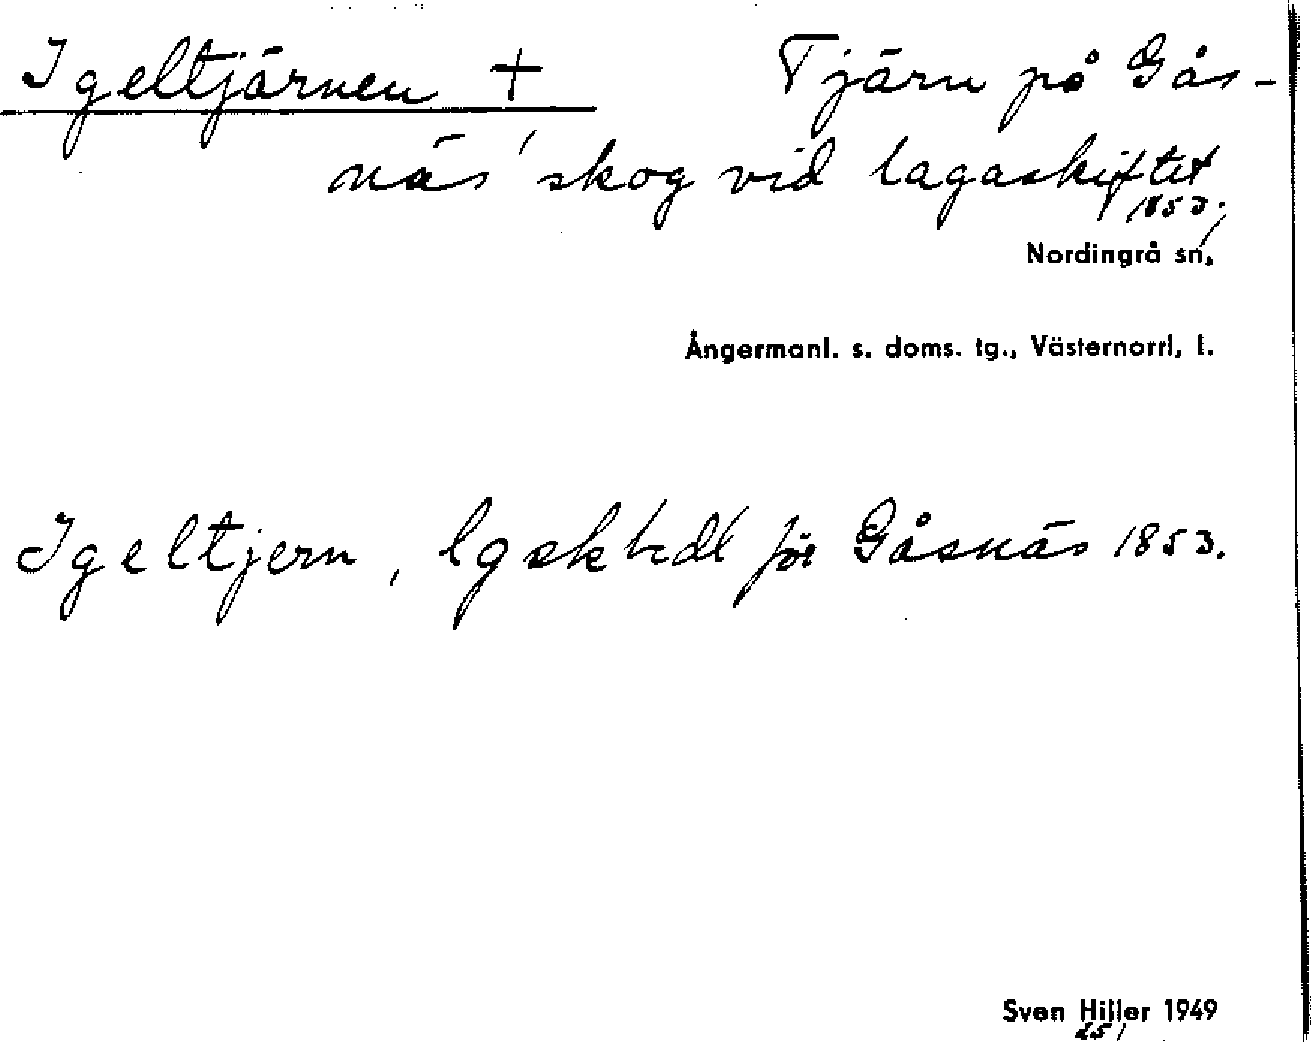 Igeltjärnen + Tjärn på Gås-
näs' skog vid lagaskiftet
1853,
Nordingrå sn,
Ångermanl. s. doms. tg., Västernorrl, l.
Igeltjern, lgsk för Gåsnäs 1853.
Sven Hiller 1949